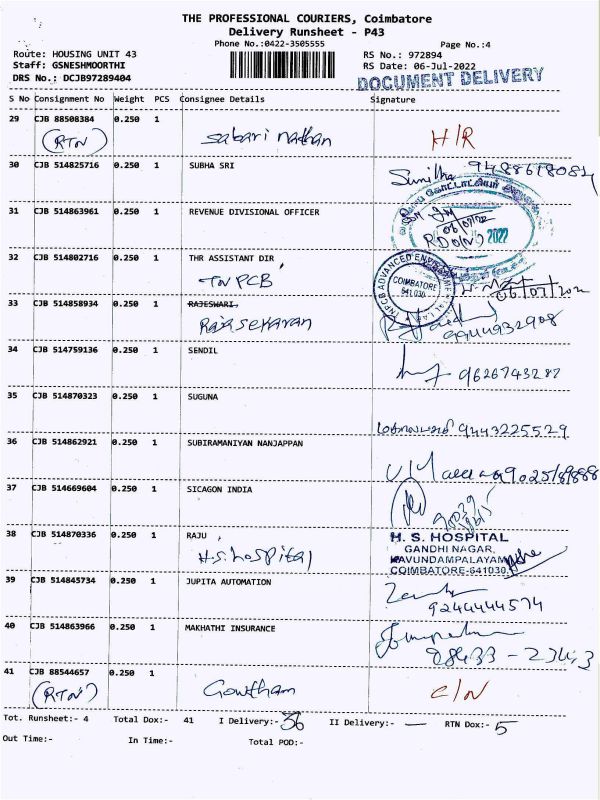 THE PROFESSIONAL COURIERS, Coimbatore
Delivery Runsheet - P43
Phone No.:0422-3505555
Page No.:4
Route: HOUSING UNIT 43
RS No.: 972894
Staff: GSNESHMOORTHI
RS Date: 06-Jul-2022
DRS No.: DCJB97289404
DOCUMENT DELIVERY
S No Consignment No Weight PCS Consignee Details Signature
29 CJB 88508384 0.250 1
(RTN) Sabari nathan H/R
30 CJB 514825716 0.250 1 SUBHA SRI
31 CJB 514863961 0.250 1 REVENUE DIVISIONAL OFFICER
06/07/22
RDO(N) 2022
32 CJB 514802716 0.250 1 THR ASSISTANT DIR
TNPCB
COIMBATORE
641 030
33 CJB 514858934 0.250 1 RAJESWARI.
Rajasekaran 9944932908
34 CJB 514759136 0.250 1 SENDIL
9626743287
35 CJB 514870323 0.250 1 SUGUNA
9443225529
36 CJB 514862921 0.250 1 SUBIRAMANIYAN NANJAPPAN
37 CJB 514669604 0.250 1 SICAGON INDIA
38 CJB 514870336 0.250 1 RAJU
H.S. hospital
H. S. HOSPITAL
GANDHI NAGAR,
KAVUNDAMPALAYAM
COIMBATORE-641030
39 CJB 514845734 0.250 1 JUPITA AUTOMATION
9244444574
40 CJB 514863966 0.250 1 MAKHATHI INSURANCE
41 CJB 88544657 0.250 1
(RTN) Gowtham C/N
Tot. Runsheet:- 4 Total Dox:- 41 I Delivery:- 36 II Delivery:- — RTN Dox:- 5
Out Time:- In Time:- Total POD:-